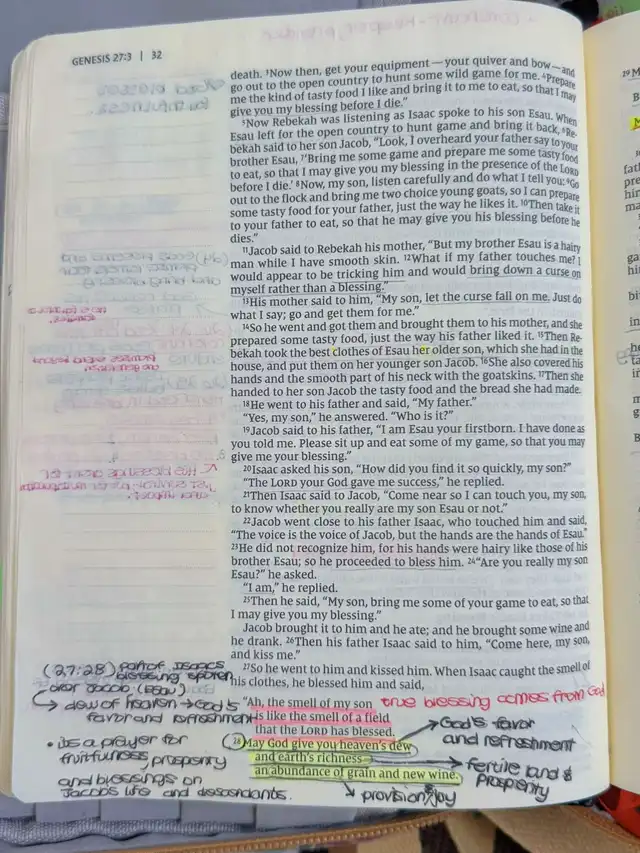 GENESIS 27:3 | 32
death. 3Now then, get your equipment—your quiver and bow—and
go out to the open country to hunt some wild game for me. 4Prepare
me the kind of tasty food I like and bring it to me to eat, so that I may
give you my blessing before I die."
5Now Rebekah was listening as Isaac spoke to his son Esau. When
Esau left for the open country to hunt game and bring it back, 6Re-
bekah said to her son Jacob, "Look, I overheard your father say to your
brother Esau, 7'Bring me some game and prepare me some tasty food
to eat, so that I may give you my blessing in the presence of the LORD
before I die.' 8Now, my son, listen carefully and do what I tell you: 9Go
out to the flock and bring me two choice young goats, so I can prepare
some tasty food for your father, just the way he likes it. 10Then take it
to your father to eat, so that he may give you his blessing before he
dies."
11Jacob said to Rebekah his mother, "But my brother Esau is a hairy
man while I have smooth skin. 12What if my father touches me? I
would appear to be tricking him and would bring down a curse on
myself rather than a blessing."
13His mother said to him, "My son, let the curse fall on me. Just do
what I say; go and get them for me."
14So he went and got them and brought them to his mother, and she
prepared some tasty food, just the way his father liked it. 15Then Re-
bekah took the best clothes of Esau her older son, which she had in the
house, and put them on her younger son Jacob. 16She also covered his
hands and the smooth part of his neck with the goatskins. 17Then she
handed to her son Jacob the tasty food and the bread she had made.
18He went to his father and said, "My father."
"Yes, my son," he answered. "Who is it?"
19Jacob said to his father, "I am Esau your firstborn. I have done as
you told me. Please sit up and eat some of my game, so that you may
give me your blessing."
20Isaac asked his son, "How did you find it so quickly, my son?"
"The LORD your God gave me success," he replied.
21Then Isaac said to Jacob, "Come near so I can touch you, my son,
to know whether you really are my son Esau or not."
22Jacob went close to his father Isaac, who touched him and said,
"The voice is the voice of Jacob, but the hands are the hands of Esau."
23He did not recognize him, for his hands were hairy like those of his
brother Esau; so he proceeded to bless him. 24"Are you really my son
Esau?" he asked.
"I am," he replied.
25Then he said, "My son, bring me some of your game to eat, so that
I may give you my blessing."
Jacob brought it to him and he ate; and he brought some wine and
he drank. 26Then his father Isaac said to him, "Come here, my son,
and kiss me."
27So he went to him and kissed him. When Isaac caught the smell of
his clothes, he blessed him and said,
"Ah, the smell of my son
is like the smell of a field
that the LORD has blessed.
28May God give you heaven's dew
and earth's richness—
an abundance of grain and new wine.
true blessing comes from God
God's favor
and refreshment
fertile land &
prosperity
provision & joy
(27:28) part of Isaacs
blessing spoken
over Jacob (Esau)
dew of heaven → God's
favor and refreshment
• its a prayer for
fruitfulness, prosperity
and blessings on
Jacobs life and descendants.